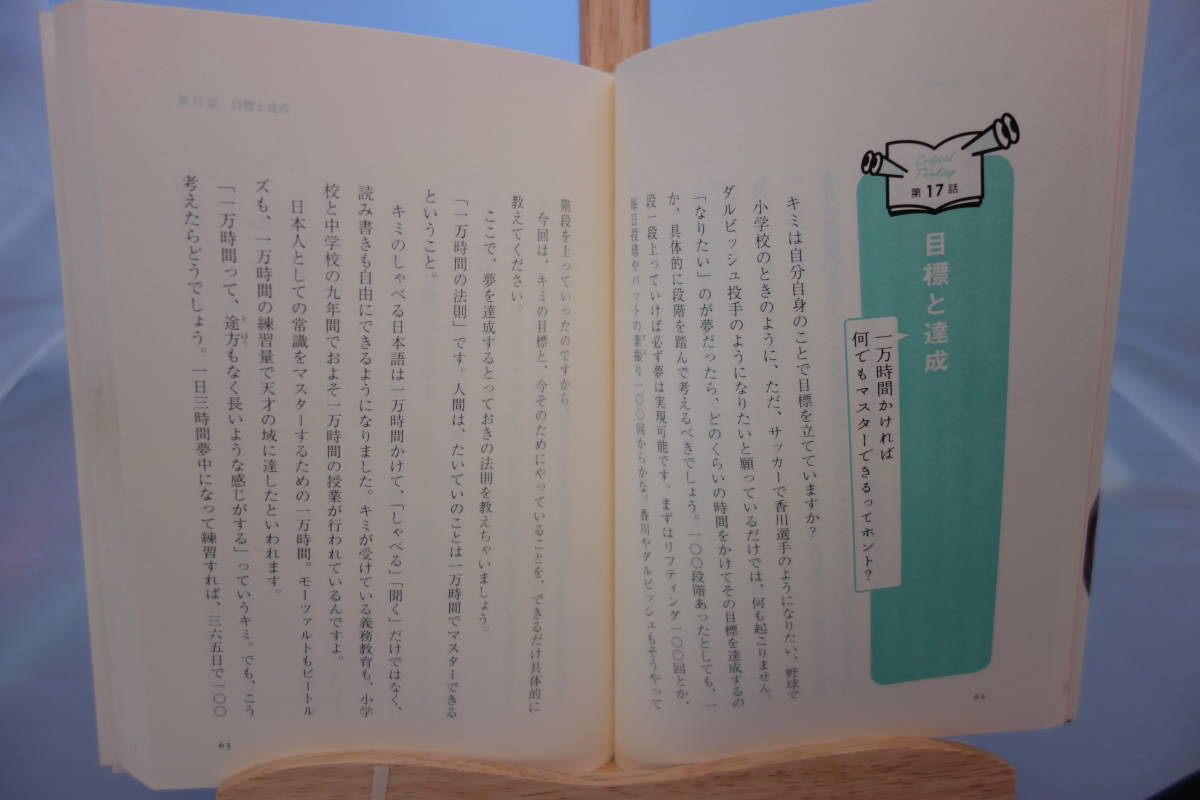 Critical
Thinking
第17話
目標と達成
一万時間かければ
何でもマスターできるってホント?
キミは自分自身のことで目標を立てていますか?
小学校のときのように、ただ、サッカーで香川選手のようになりたい、野球で
ダルビッシュ投手のようになりたいと願っているだけでは、何も起こりません。
「なりたい」のが夢だったら、どのくらいの時間をかけてその目標を達成するの
か、具体的に段階を踏んで考えるべきでしょう。一〇〇段階あったとしても、一
段一段上っていけば必ず夢は実現可能です。まずはリフティング一〇〇回とか、
毎日投球やバットの素振り一〇〇回からかな。香川やダルビッシュもそうやって
62
階段を上っていったのですから。
今回は、キミの目標と、今そのためにやっていることを、できるだけ具体的に
教えてください。
ここで、夢を達成するとっておきの法則を教えちゃいましょう。
「一万時間の法則」です。人間は、たいていのことは一万時間でマスターできる
ということ。
キミのしゃべる日本語は一万時間かけて、「しゃべる」「聞く」だけではなく、
読み書きも自由にできるようになりました。キミが受けている義務教育も、小学
校と中学校の九年間でおよそ一万時間の授業が行われているんですよ。
日本人としての常識をマスターするための一万時間。モーツァルトもビートル
ズも、一万時間の練習量で天才の域に達したといわれます。
「一万時間って、途方もなく長いような感じがする」っていうキミ。でも、こう
とほう
考えたらどうでしょう。一日三時間夢中になって練習すれば、三六五日で一〇〇
第17話 目標と達成
63